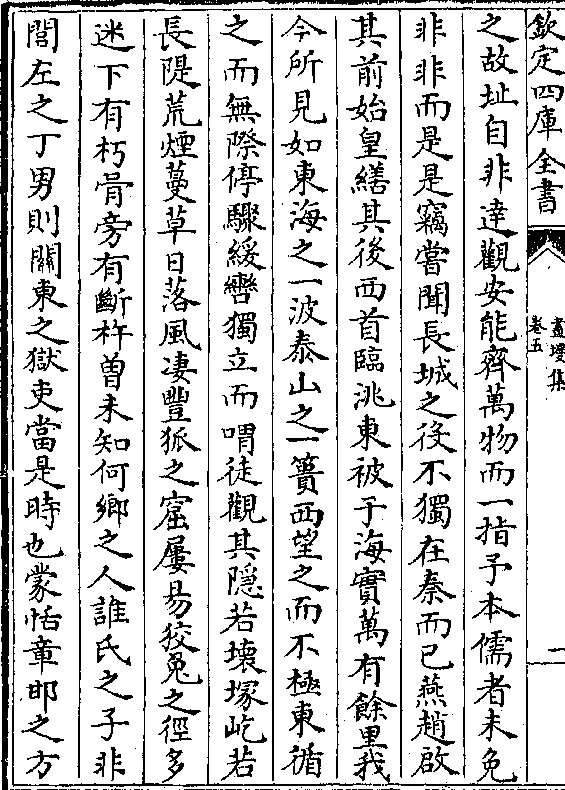 欽定四庫全書
畫墁集
卷五
一
之故址自非達觀安能齊萬物而一指予本儒者未免
非非而是是竊嘗聞長城之役不獨在秦而已燕趙啟
其前始皇繕其後西首臨洮東被于海實萬有餘里我
今所見如東海之一波泰山之一簣西望之而不極東循
之而無際停驟緩轡獨立而喟徒觀其隱若壊塚屹若
長隄荒煙蔓草日落風凄豐狐之窟屢易狡兔之徑多
迷下有朽骨旁有斷杵曽未知何鄉之人誰氏之子非
閭左之丁男則關東之獄吏當是時也蒙恬章邯之方